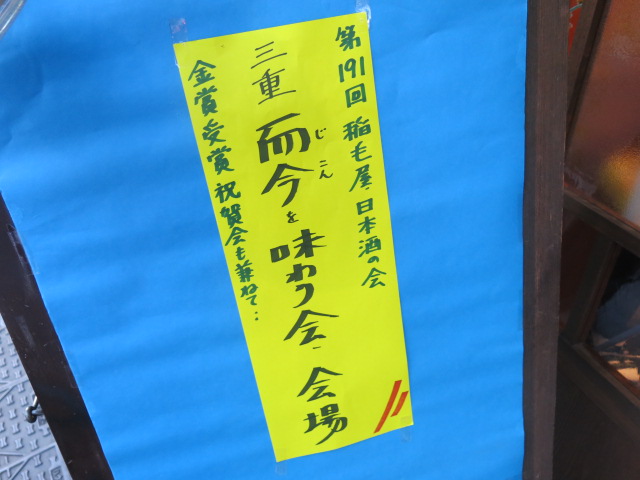 第191回 稲毛屋・日本酒の会
三重 而今を味わう会・会場
じこん
金賞受賞祝賀会も兼ねて・・